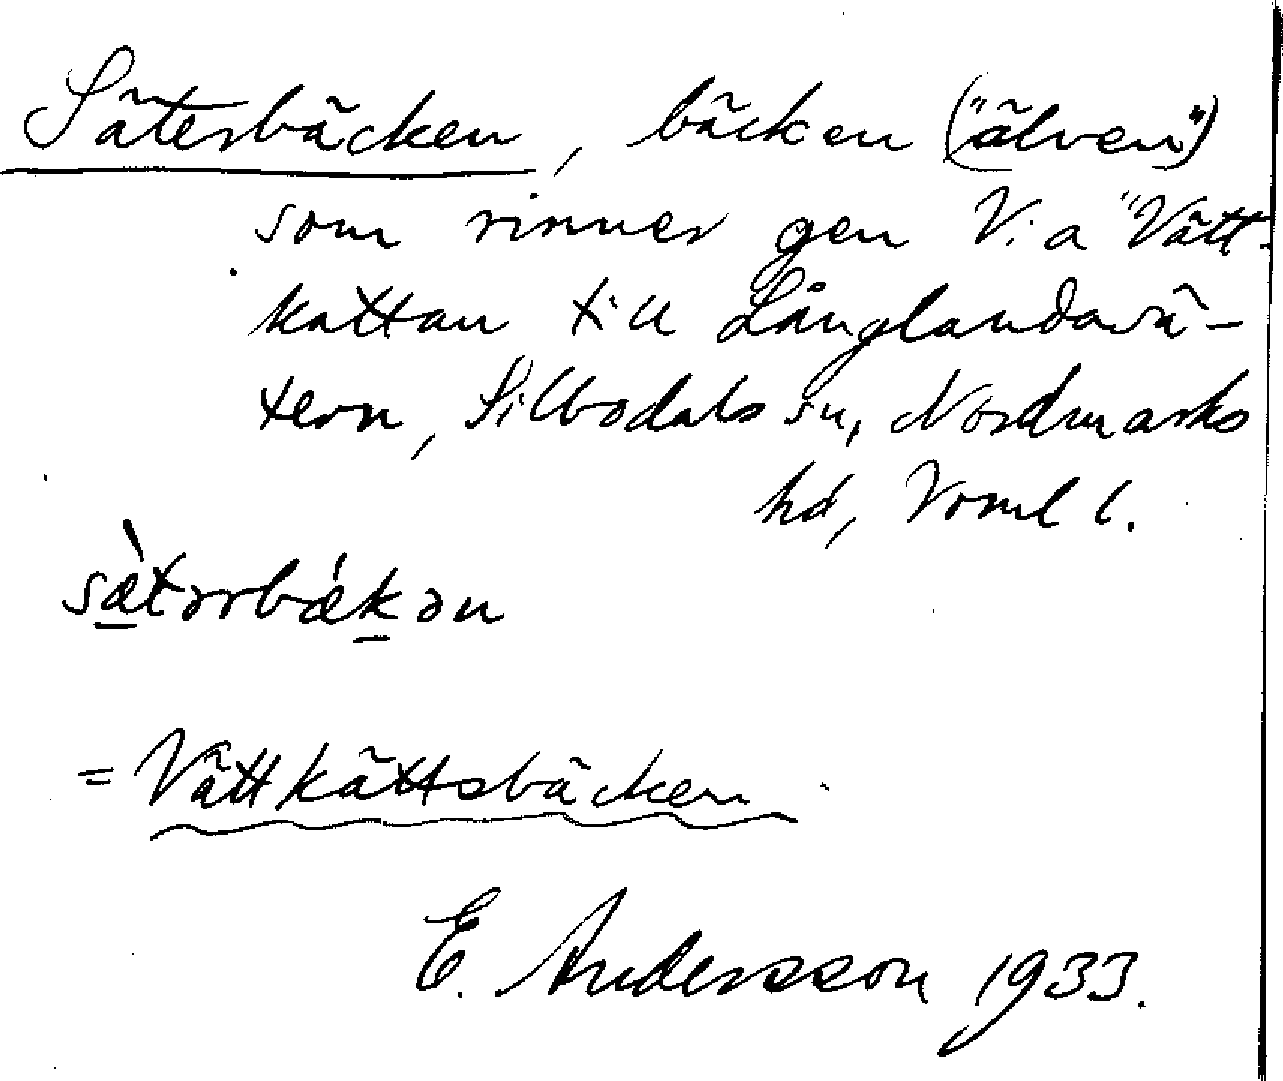 Säterbäcken, bäcken ("älven")
som rinner gen V:a "Vätt-
kattan till Långlandavä-
tern, Silbodals sn, Nordmarks
hd, Vrml l.
sæ̀tərbǽkən
= Vättkättsbäcken
E. Andersson 1933.